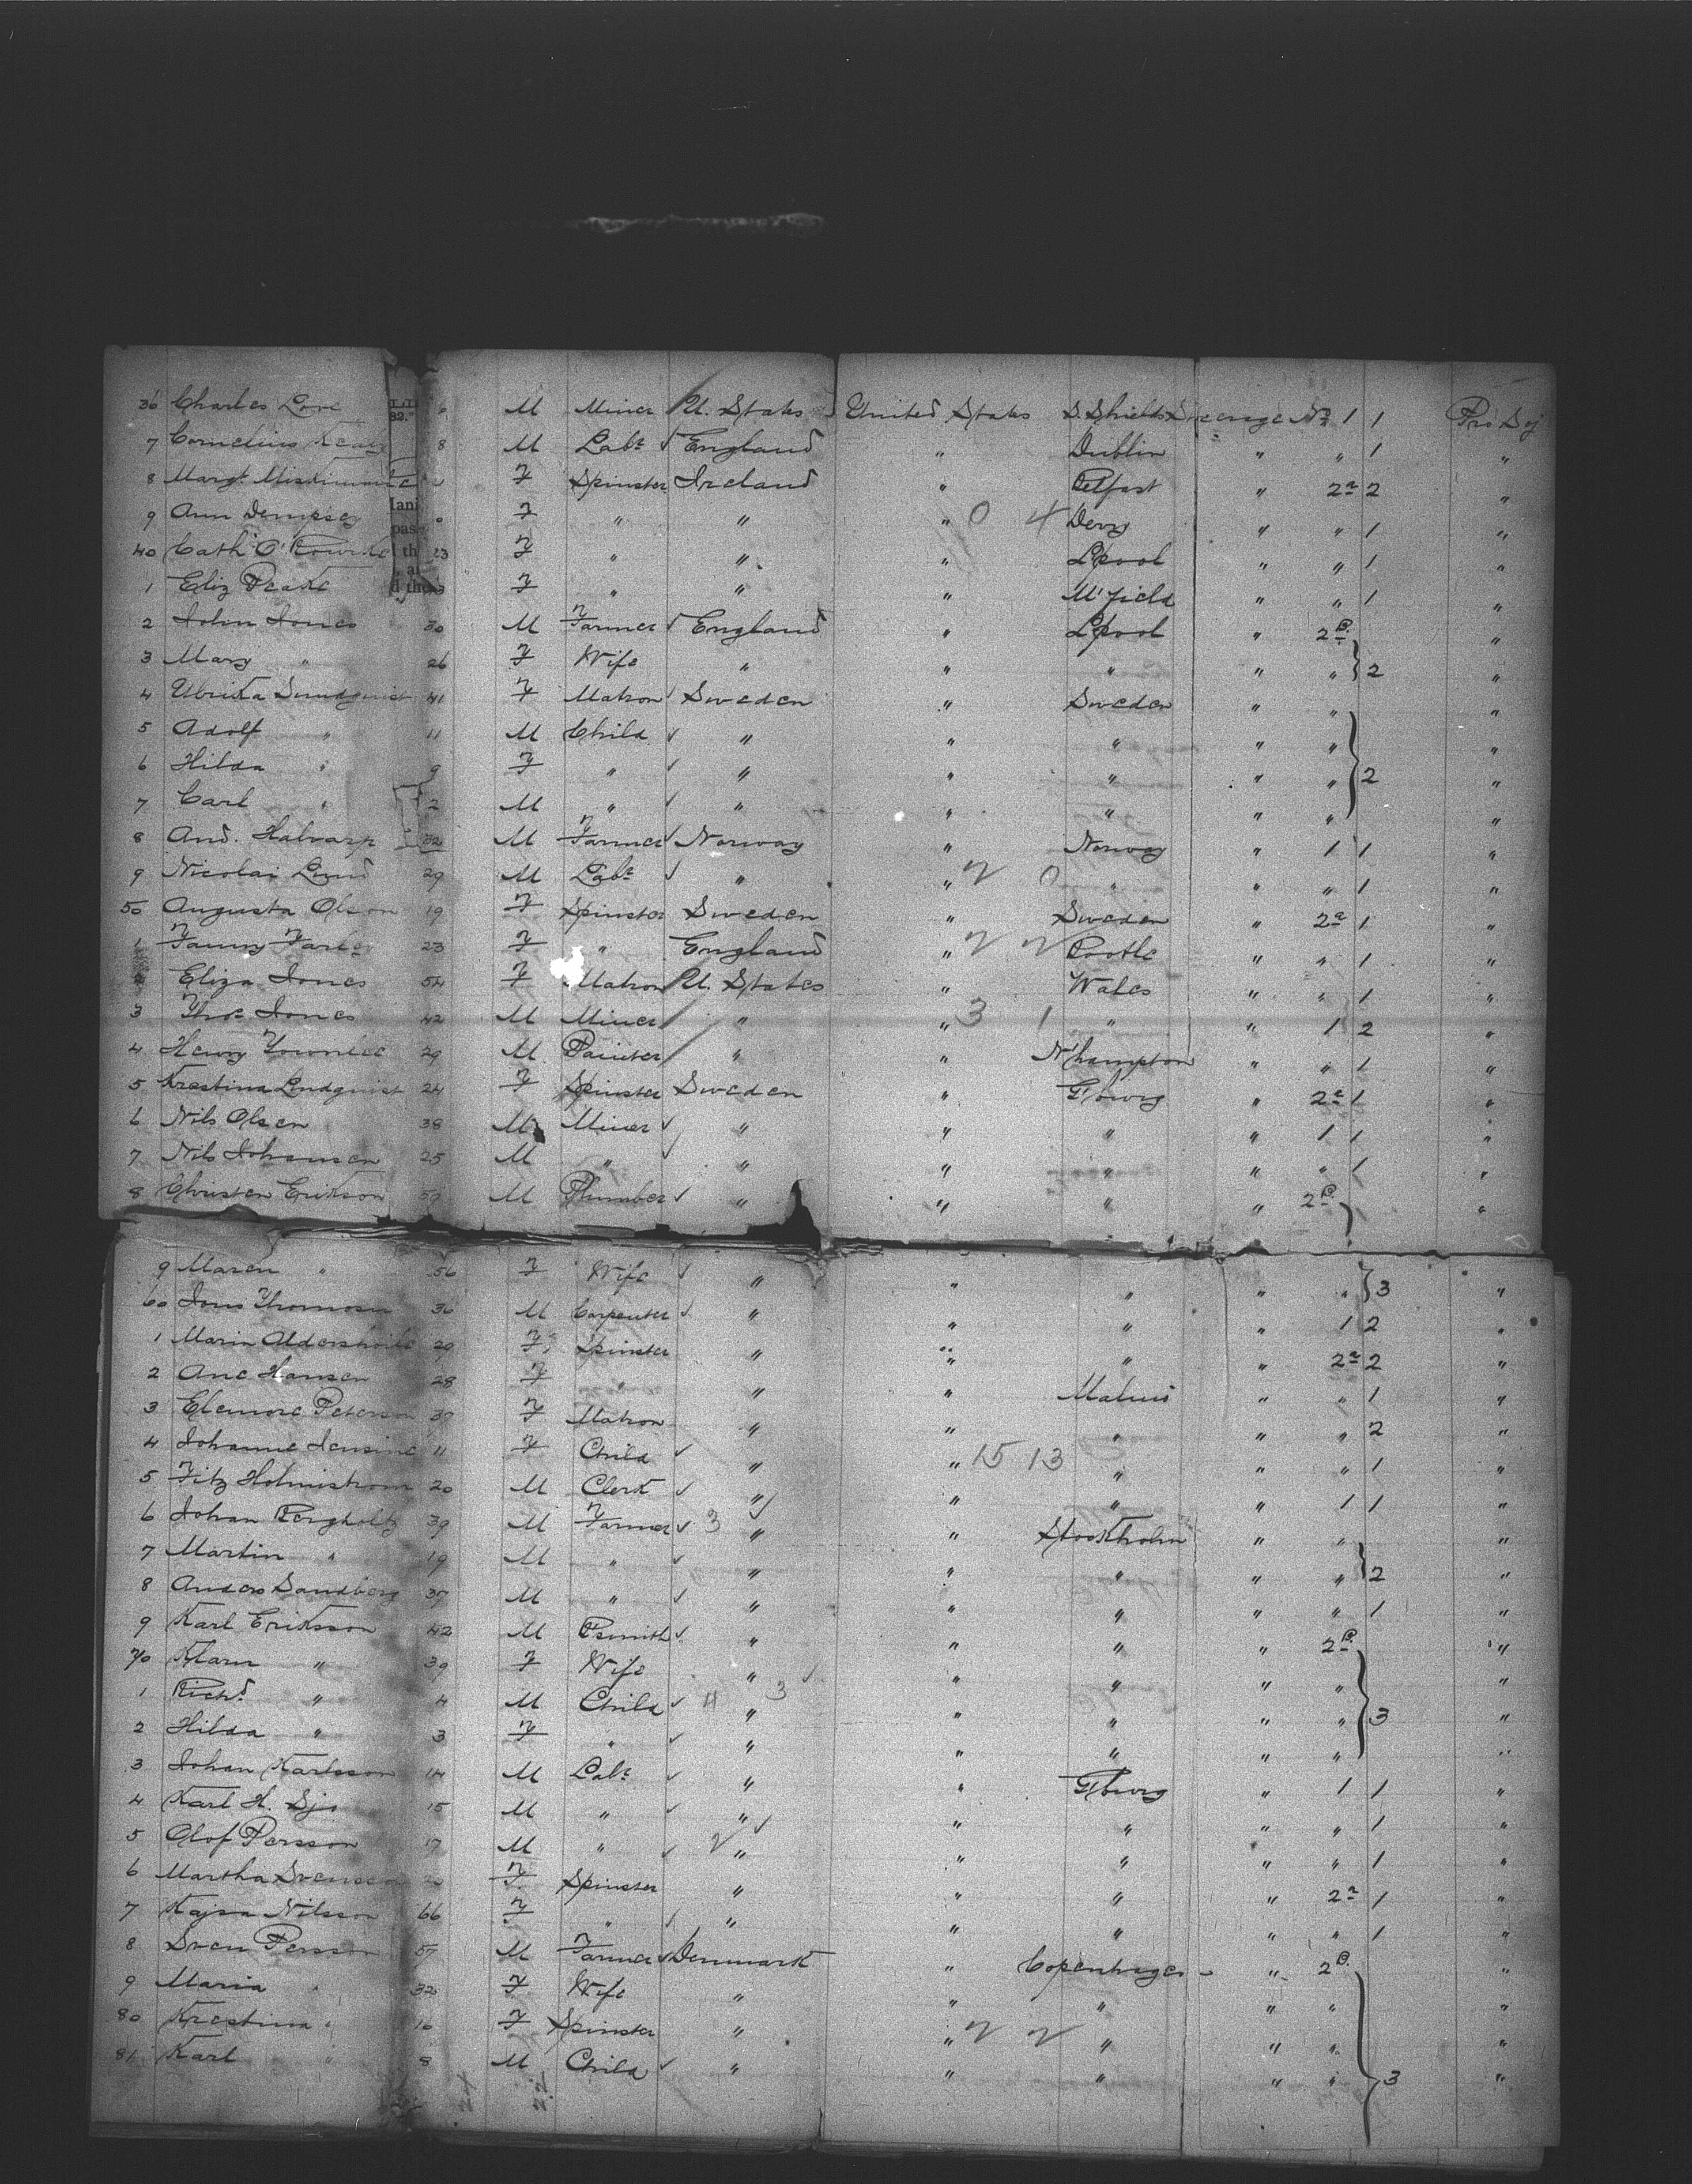 36 Charles Love M Miner U. States United States S. Shields Steerage No 1 1 Pro Soj
7 Cornelius 8 M Labr ✓ England " Dublin " " 1 "
8 Margt. F Spinster Ireland " Belfast " 2a 2 "
9 Ann Dempsey F " " " 0 4 Derry " " 1 "
40 Cath O'Rourke 23 F " " " L'pool " " 1 "
1 Eliz Peake F " " " M'field " " 1 "
2 John Jones 30 M Farmer ✓ England " L'pool " 2B. "
3 Mary " 26 F Wife " " " " " } 2 "
4 Ulrika Sundquist 41 F Matron ✓ Sweden " Sweden " " "
5 Adolf " 11 M Child ✓ " " " " " "
6 Hilda " 9 F " ✓ " " " " " } 2 "
7 Carl " 2 M " ✓ " " " " " "
8 And. Halvarp 32 M Farmer ✓ Norway " Norway " 1 1 "
9 Nicolai Lund 29 M Labr ✓ " " 2 0 " " " 1 "
50 Augusta Olson 19 F Spinster Sweden " Sweden " 2a 1 "
1 Fanny 23 F " England " 2 2 Bootle " " 1 "
Eliza Jones 54 F Matron U. States " Wales " " 1 "
3 Thos Jones 42 M Miner " " 3 1 " " 1 2 "
4 Henry Townlee 29 M Painter " " N'hampton " " 1 "
5 Krestina Lindquist 24 F Spinster Sweden " G'burg " 2a 1 "
6 Nils Olsen 38 M Miner ✓ " " " " 1 1 "
7 Nils Johansen 25 M " ✓ " " " " " 1 "
8 Christen Erikson 59 M Plumber ✓ " " " " 2B. "
9 Maren " 56 F Wife ✓ " " " " " } 3 "
60 Jens Thomsen 36 M Carpenter ✓ " " " " 1 2 "
1 Marin 29 F Spinster " " " " 2a 2 "
2 Ane Hansen 28 F " " " Malmö " " 1 "
3 Elenore Peterson 37 F Matron " " " " " 2 "
4 Johanne Jensine 11 F Child ✓ " " 15 13 " " " 1 "
5 Fitz Holmstrom 20 M Clerk ✓ " " " " 1 1 "
6 Johan Bergholtz 39 M Farmer ✓ 3 " " Stockholm " " "
7 Martin " 19 M " ✓ " " " " " } 2 "
8 Anders Sandberg 37 M " ✓ " " " " " 1 "
9 Karl Eriksson 42 M B'smith ✓ " " " " 2B. "
70 Klara " 39 F Wife " " " " " "
1 Richd " 4 M Child ✓ 4 3 " " " " " } 3 "
2 Hilda " 3 F " ✓ " " " " " "
3 Johan Karlsson 14 M Labr ✓ " " G'burg " 1 1 "
4 Karl H. Sjo 15 M " ✓ " " " " " 1 "
5 Olof Persson 17 M " ✓ 2 " " " " " 1 "
6 Martha Svensson F Spinster " " " " 2a 1 "
7 Kajsa Nilsson 66 F " ✓ " " " " " 1 "
8 Sven Persson 57 M Farmer ✓ Denmark " Copenhagen " 2B. "
9 Maria " 32 F Wife " " " " " "
80 Krestina " 10 F Spinster " " 2 2 " " " "
81 Karl " 8 M Child ✓ " " " " " } 3 "